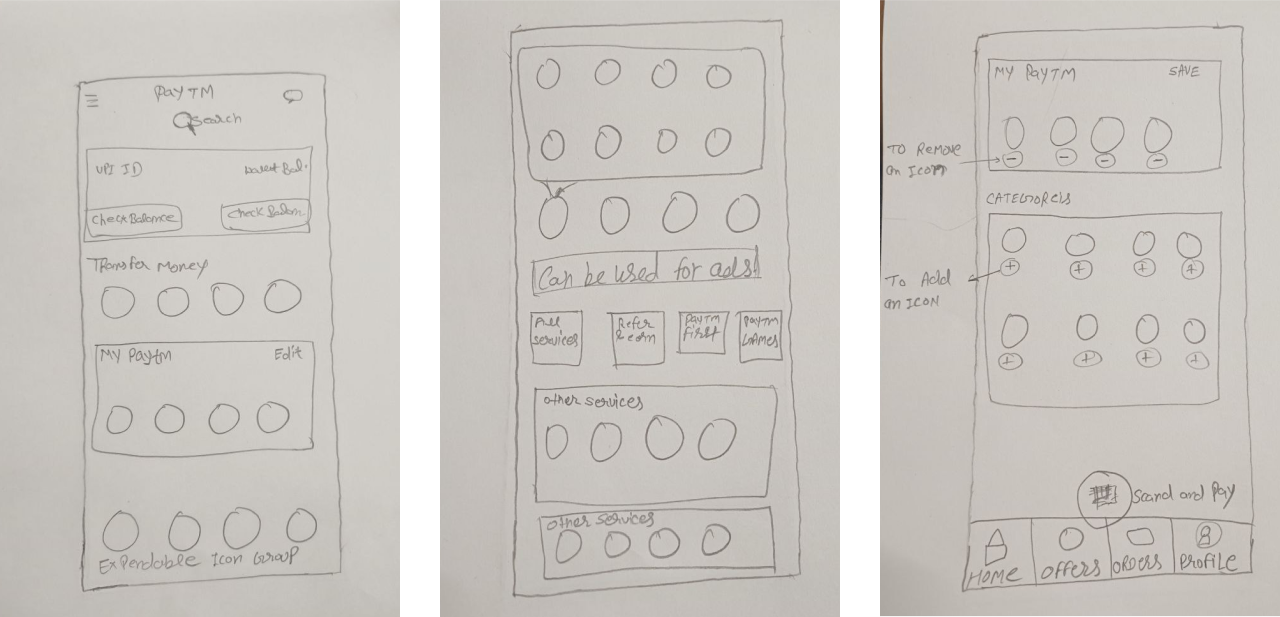 PayTM
Search
UPI ID
Wallet Bal.
Check Balance
Check Balanc
Transfer Money
My Paytm
Edit
Expendable Icon Group
Can be used for ads!
All
services
Refer
& earn
PayTM
first
PayTM
GAMES
other services
other services
MY PayTM
SAVE
TO Remove
an Icon
CATEGORCIS
To Add
an ICON
Scand and Pay
HOME
OFFERS
ORDERS
PROFILE